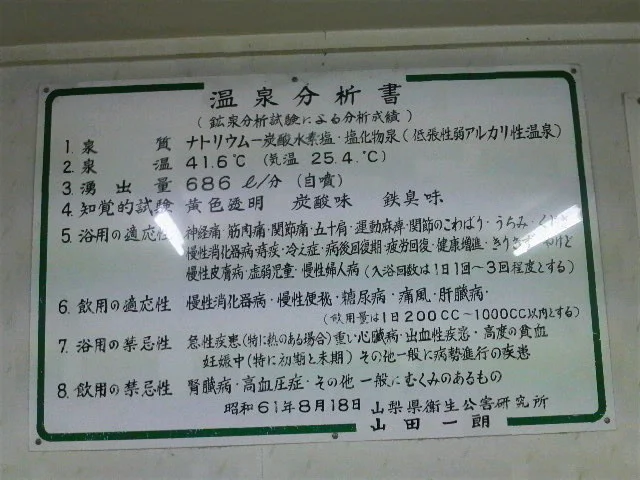 温泉分析書
(鉱泉分析試験による分析成績)
1. 泉質 ナトリウムー炭酸水素塩・塩化物泉(低張性弱アルカリ性温泉)
2. 泉温 41.6℃ (気温 25.4.℃)
3. 湧出量 686 ℓ/分 (自噴)
4. 知覚的試験 黄色透明 炭酸味 鉄臭味
5. 浴用の適応性 神経痛・筋肉痛・関節痛・五十肩・運動麻痺・関節のこわばり・うちみ・くじき
慢性消化器病・痔疾・冷え症・病後回復期・疲労回復・健康増進・きりきず・やけど
慢性皮膚病・虚弱児童・慢性婦人病(入浴回数は1日1回〜3回程度とする)
6. 飲用の適応性 慢性消化器病・慢性便秘・糖尿病・痛風・肝臓病・
(飲用量は1日200CC〜1000CC以内とする)
7. 浴用の禁忌性 急性疾患(特に熱のある場合)重い心臓病・出血性疾患・高度の貧血
妊娠中(特に初期と末期) その他一般に病勢進行の疾患
8. 飲用の禁忌性 腎臓病・高血圧症・その他 一般にむくみのあるもの
昭和61年8月18日 山梨県衛生公害研究所
山田一朗